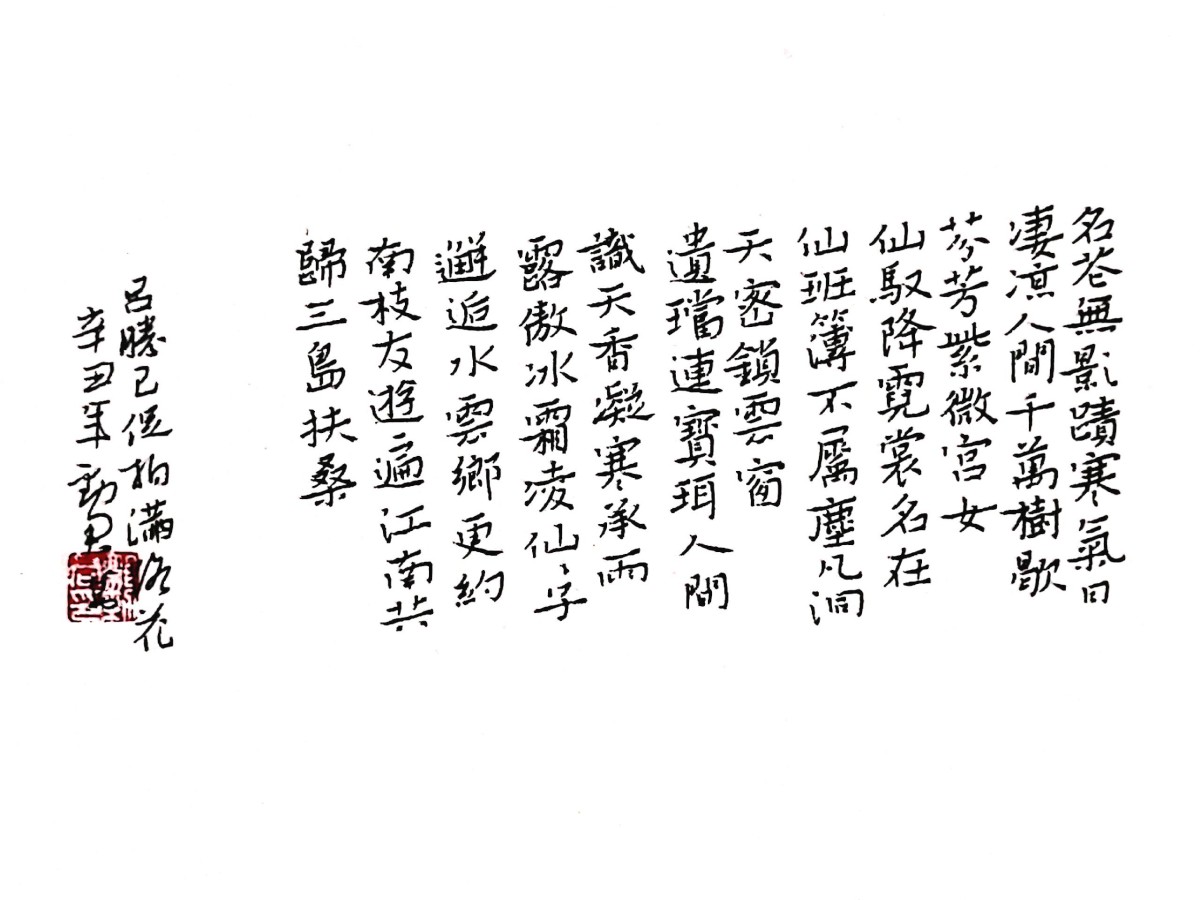 名花無影蹟寒氣日
凄凉人間千萬樹歇
芬芳紫微宫女
仙馭降霓裳名在
仙班簿不屬塵凡洞
天密鎖雲窗
遺璫連寶珥人間
識天香凝寒承雨
露傲冰霜凌仙子
邂逅水雲鄉更約
南枝友遊遍江南共
歸三島扶桑
吕勝己促拍滿路花
辛丑年